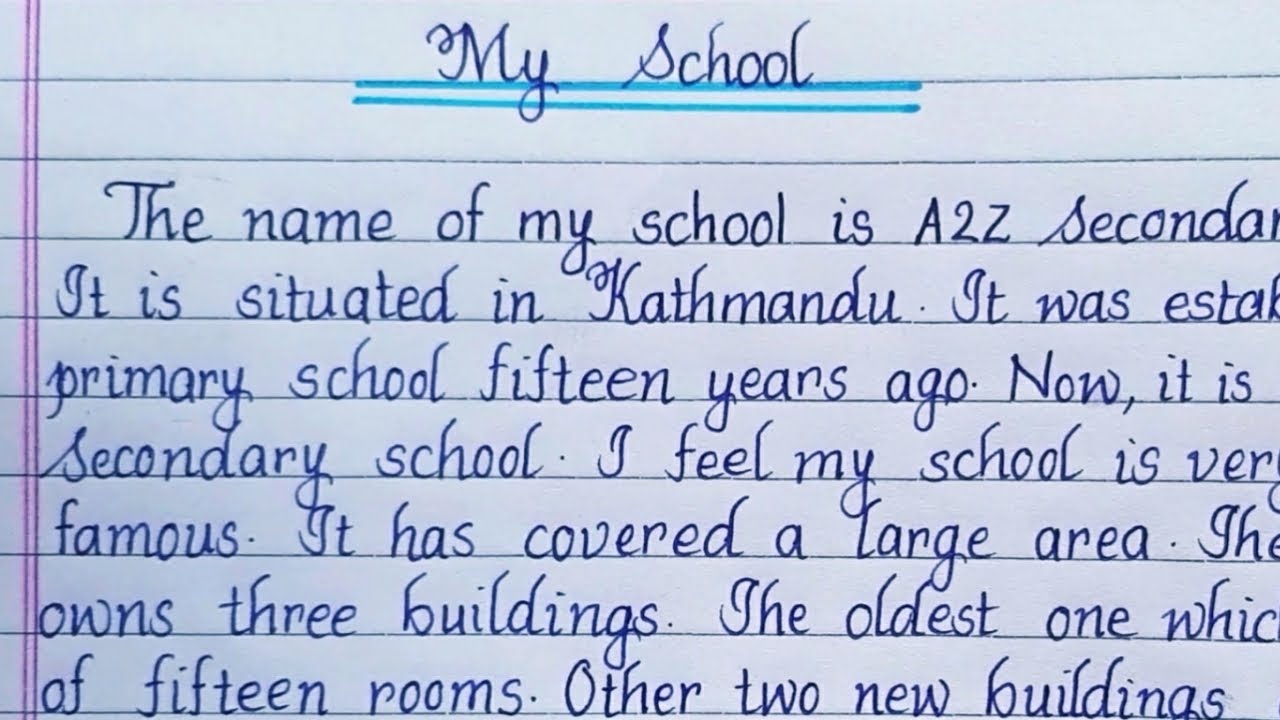 My School
The name of my school is A2Z Secondar
It is situated in Kathmandu. It was estab
primary school fifteen years ago. Now, it is
secondary school. I feel my school is very
famous. It has covered a large area. The
owns three buildings. The oldest one whic
of fifteen rooms. Other two new buildings